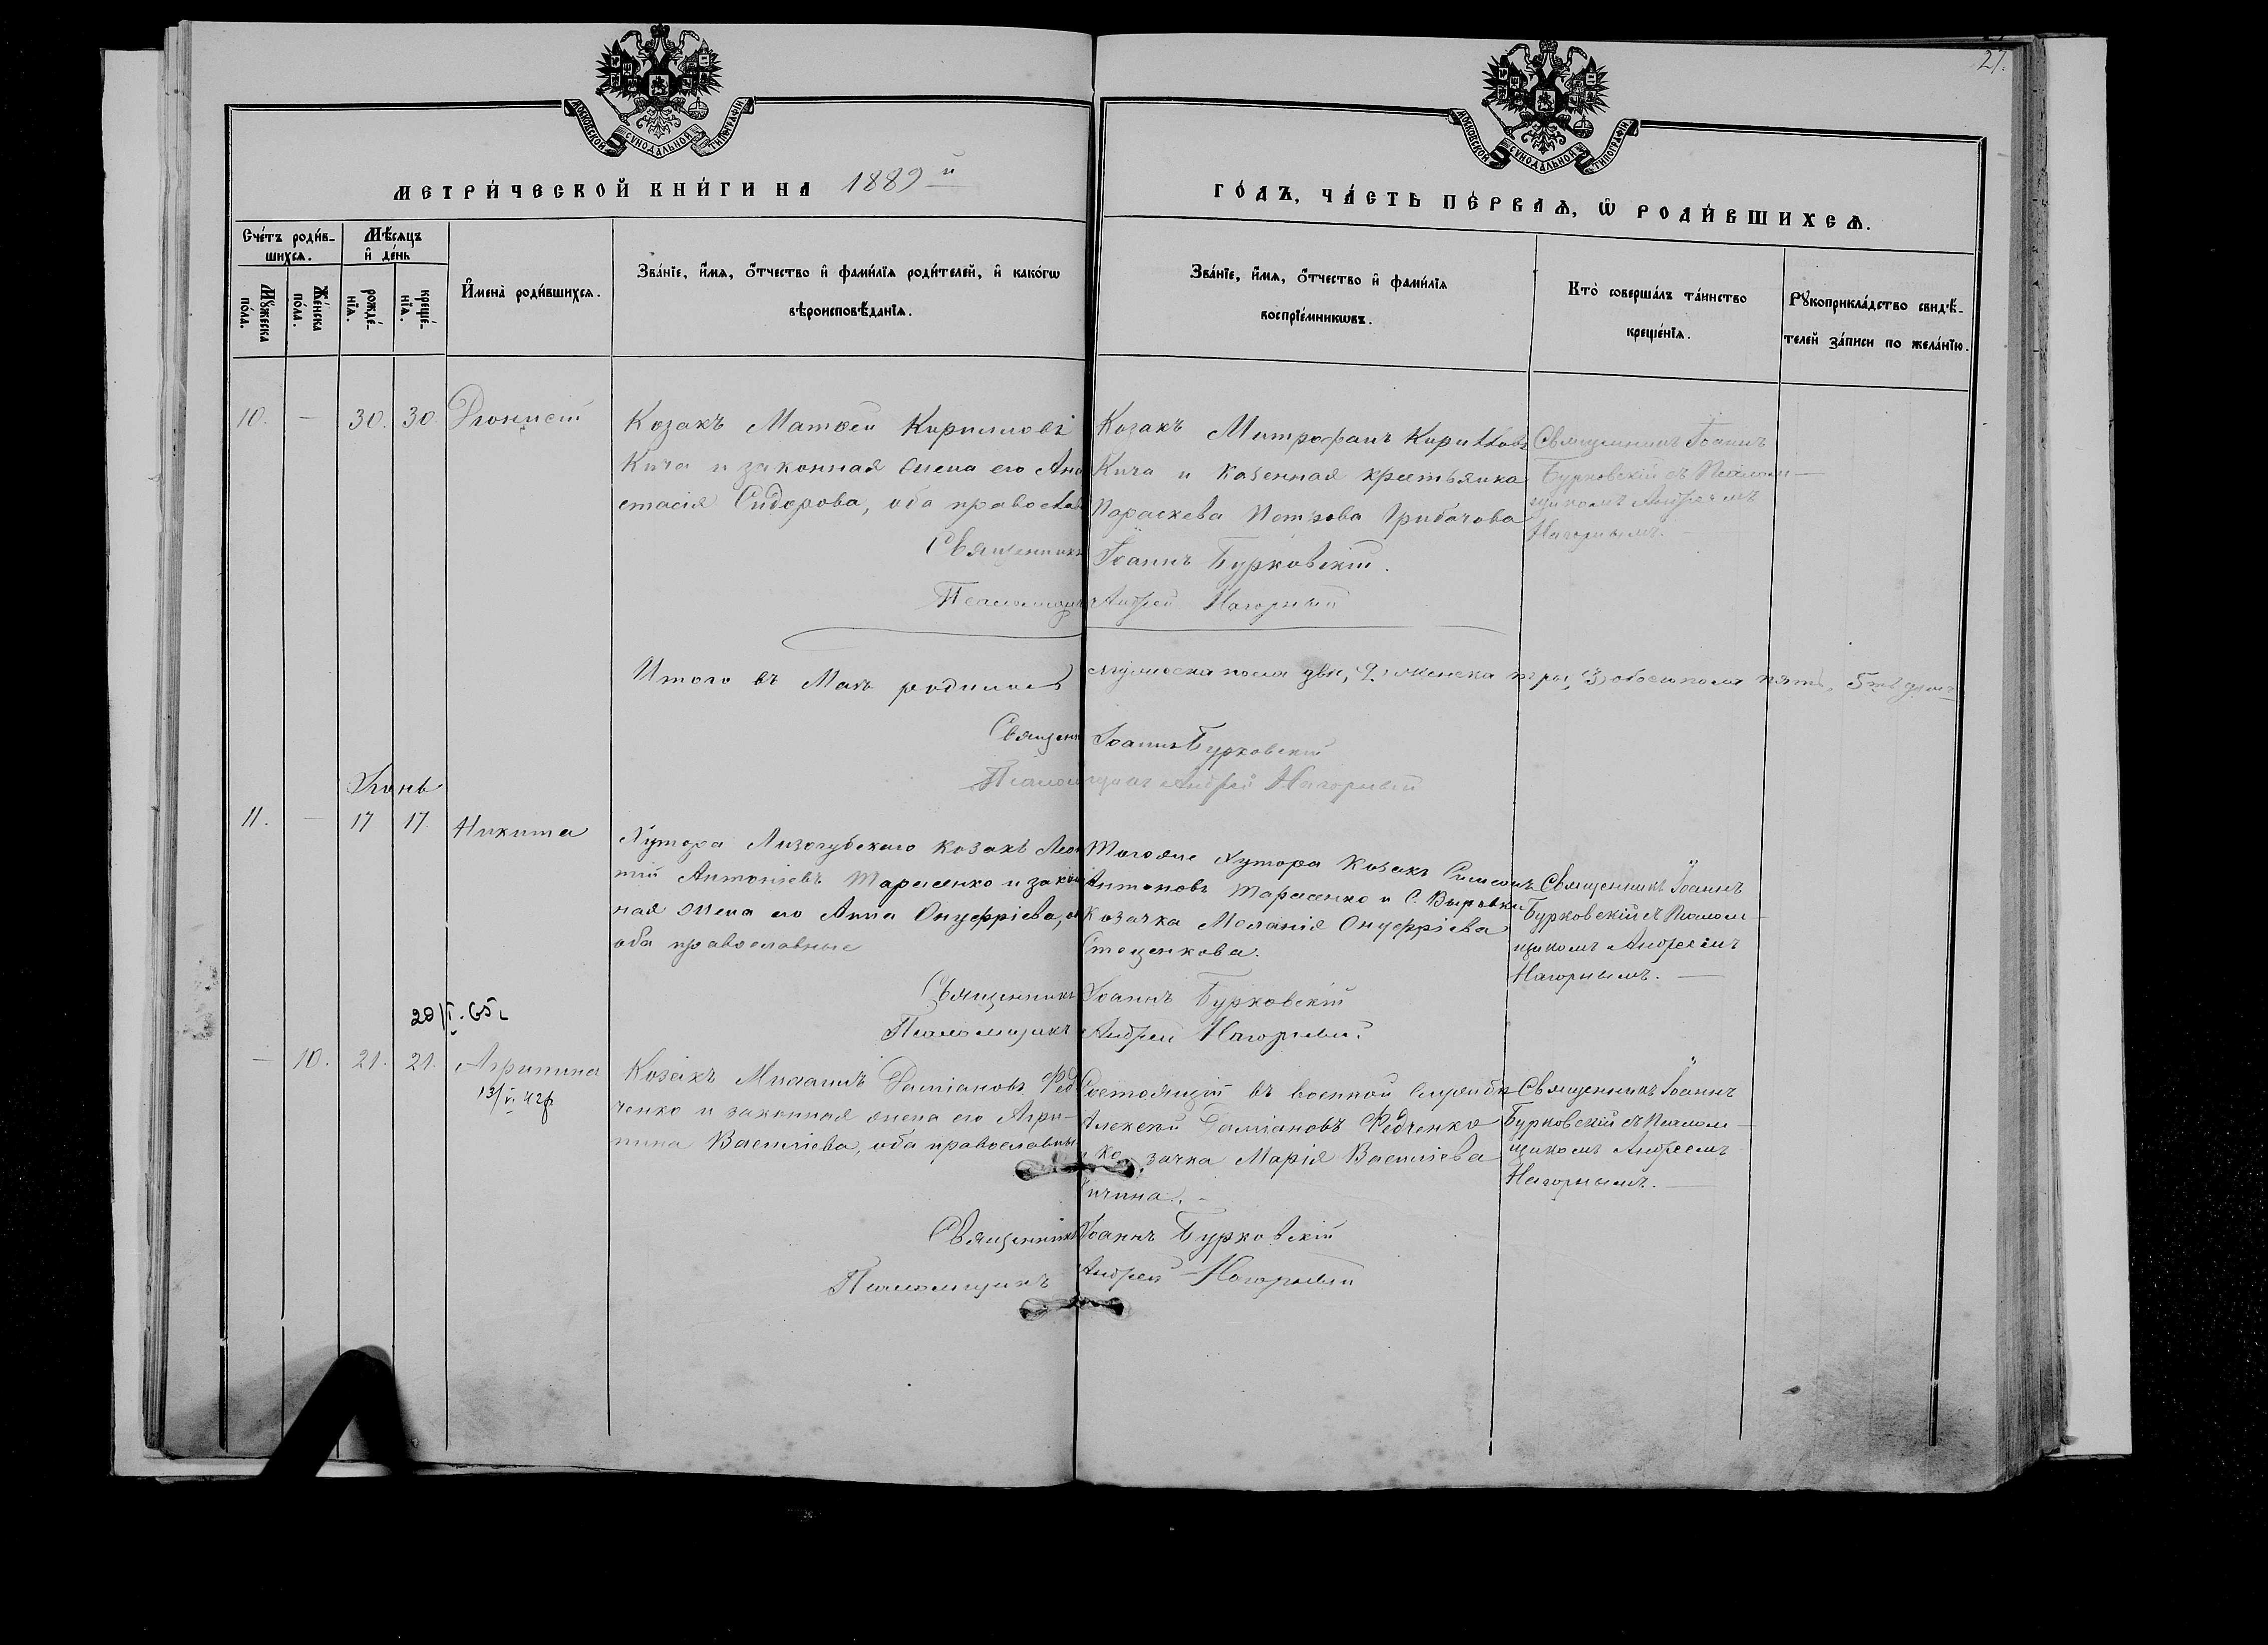 27.
МОСКОВСКОЙ СѴНОДАЛЬНОЙ ТИПОГРАФІИ
МОСКОВСКОЙ СѴНОДАЛЬНОЙ ТИПОГРАФІИ
МЕТРИ́ЧЕСКОЙ КНИ́ГИ НА 1889й
ГО́ДЪ, ЧА́СТЬ ПЕ́РВАѦ, Ѡ҆ РОДИ́ВШИХСѦ.
Сче́тъ роди́в-
шихсѧ.
Мꙋ́жеска по́ла.
Же́нска по́ла.
Мѣ́сѧцъ
и҆ де́нь
рожде́-
нїѧ.
креще́-
нїѧ.
И҆мена̀ роди́вшихсѧ.
Зва́нїе, и҆́мѧ, ѻ҆́тчество и҆ фами́лїѧ роди́телей, и҆ како́гѡ
вѣроисповѣ́данїѧ.
Зва́нїе, и҆́мѧ, ѻ҆́тчество и҆ фами́лїѧ
воспрїе́мникѡвъ.
Кто̀ соверша́лъ та́инство
креще́нїѧ.
Рꙋкоприкла́дство свидѣ́-
телей за́писи по жела́нїю.
10. — 30. 30. Діонисій
Козакъ Матѳей Кирилловъ
Кича и законная жена его Ана
стасія Сидорова, оба православ
Козакъ Митрофанъ Кирилловъ
Кича и Казенная крестьянка
Параскева Петрова Грибачова
Священникъ Іоаннъ
Бурковскій съ Псалом-
щикомъ Андреемъ
Нагорнымъ.
Священникъ Іоаннъ Бурковскій.
Псаломщикъ Андрей Нагорный
Итого въ Маѣ родилось мужеска пола два, 2, женска три, 3, обоего пола пять, 5ть душъ
Священ Іоаннъ Бурковскій
Псаломщикъ Андрей Нагорный
Іюнь
11. — 17 17. Никита
Хутора Лизогубскаго Козакъ Леон
тій Антоніевъ Тарасенко и закон
ная жена его Анна Онуфріева,
оба православные
Тогоже Хутора Козакъ Симеонъ
Антоновъ Тарасенко и С. Выровки
Козачка Меланія Онуфріева
Стеценкова.
Священникъ Іоаннъ
Бурковскій съ Псалом-
щикомъ Андреемъ
Нагорнымъ. —
Священникъ Іоаннъ Бурковскій
Псаломщикъ Андрей Нагорный.
29/I.65
— 10. 21. 21. Агрипина
13/V. 42
Козакъ Михаилъ Даміановъ Фед
ченко и законная жена его Агри-
пина Василіева, оба православны
Состоящій въ военной службѣ
Алексѣй Даміановъ Федченко
и козачка Марія Василіева
Кичина. —
Священникъ Іоаннъ
Бурковскій съ Псалом-
щикомъ Андреемъ
Нагорнымъ. —
Священникъ Іоаннъ Бурковскій
Псаломщикъ Андрей Нагорный